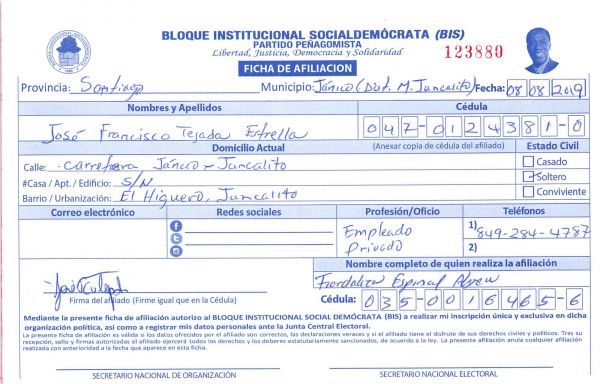 BLOQUE INSTITUCIONAL SOCIALDEMÓCRATA (BIS)
PARTIDO PEÑAGOMISTA
Libertad, Justicia, Democracia y Solidaridad
123880
FICHA DE AFILIACION
Provincia: Santiago Municipio: Jánico (Dist. M. Juncalito) Fecha: 08 08 2019
Nombres y Apellidos Cédula
José Francisco Tejada Estrella 047-0124381-0
Domicilio Actual (Anexar copia de cédula del afiliado) Estado Civil
Calle: Carretera Jánico - Juncalito Casado
#Casa / Apt. / Edificio: S/N Soltero
Barrio / Urbanización: El Higuero, Juncalito Conviviente
Correo electrónico Redes sociales Profesión/Oficio Teléfonos
Empleado 1) 849-284-4787
Privado 2)
Nombre completo de quien realiza la afiliación
Espinal Abreu
Firma del afiliado (Firme igual que en la Cédula) Cédula: 035-0016465-6
Mediante la presente ficha de afiliación autorizo al BLOQUE INSTITUCIONAL SOCIAL DEMÓCRATA (BIS) a realizar mi inscripción única y exclusiva en dicha
organización política, así como a registrar mis datos personales ante la Junta Central Electoral.
La presente ficha de afiliación es válida si los datos ofrecidos por el afiliado son correctos, las declaraciones veraces y si el afiliado tiene el disfrute de sus derechos civiles y políticos. Tras su
recepción, sello y firmas autorizadas el afiliado ejercerá todos los derechos y los deberes estatutariamente sancionados, de acuerdo a la ley. La presente afiliación anula cualquier afiliación
realizada con anterioridad a la fecha que aparece en esta ficha.
SECRETARIO NACIONAL DE ORGANIZACIÓN SECRETARIO NACIONAL ELECTORAL